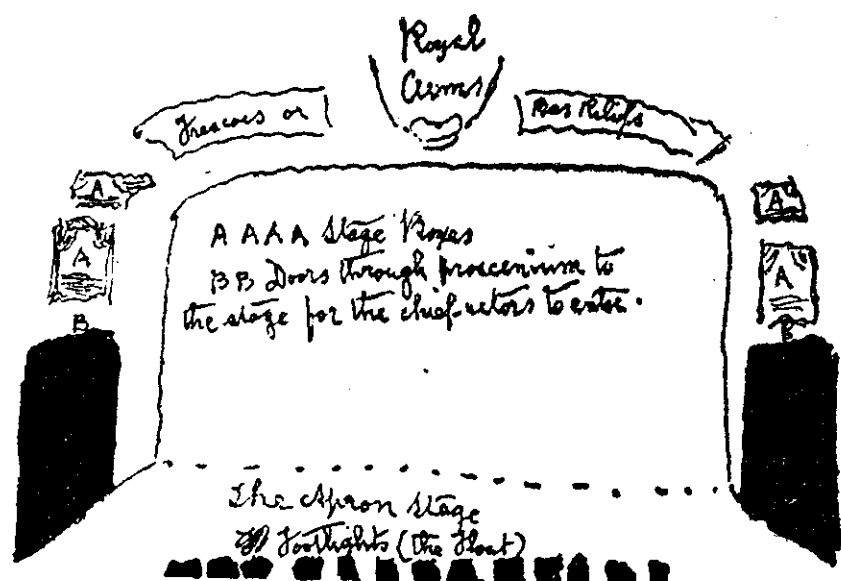 Royal
Arms
Frescoes or
Bas Reliefs
A
A
A
A
A A A A Stage Boxes
B B Doors through proscenium to
the stage for the chief actors to enter.
B
B
The Apron Stage
Footlights (The Float)